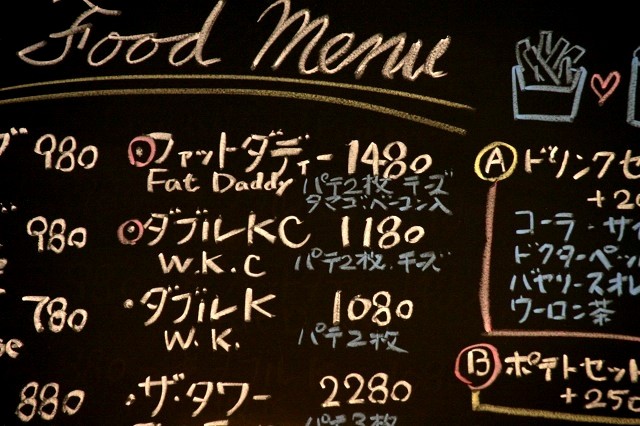 Food Menu
980
ファットダディー 1480
Fat Daddy パテ2枚 チーズ
タマゴ・ベーコン入
980
ダブルKC 1180
W.K.C パテ2枚.チーズ
780
ダブルK 1080
W.K. パテ2枚
880
ザ・タワー 2280
パテ3枚
A ドリンクセ
+20
コーラ・サイ
ドクターペッ
バヤリースオレ
ウーロン茶
B ポテトセット
+250